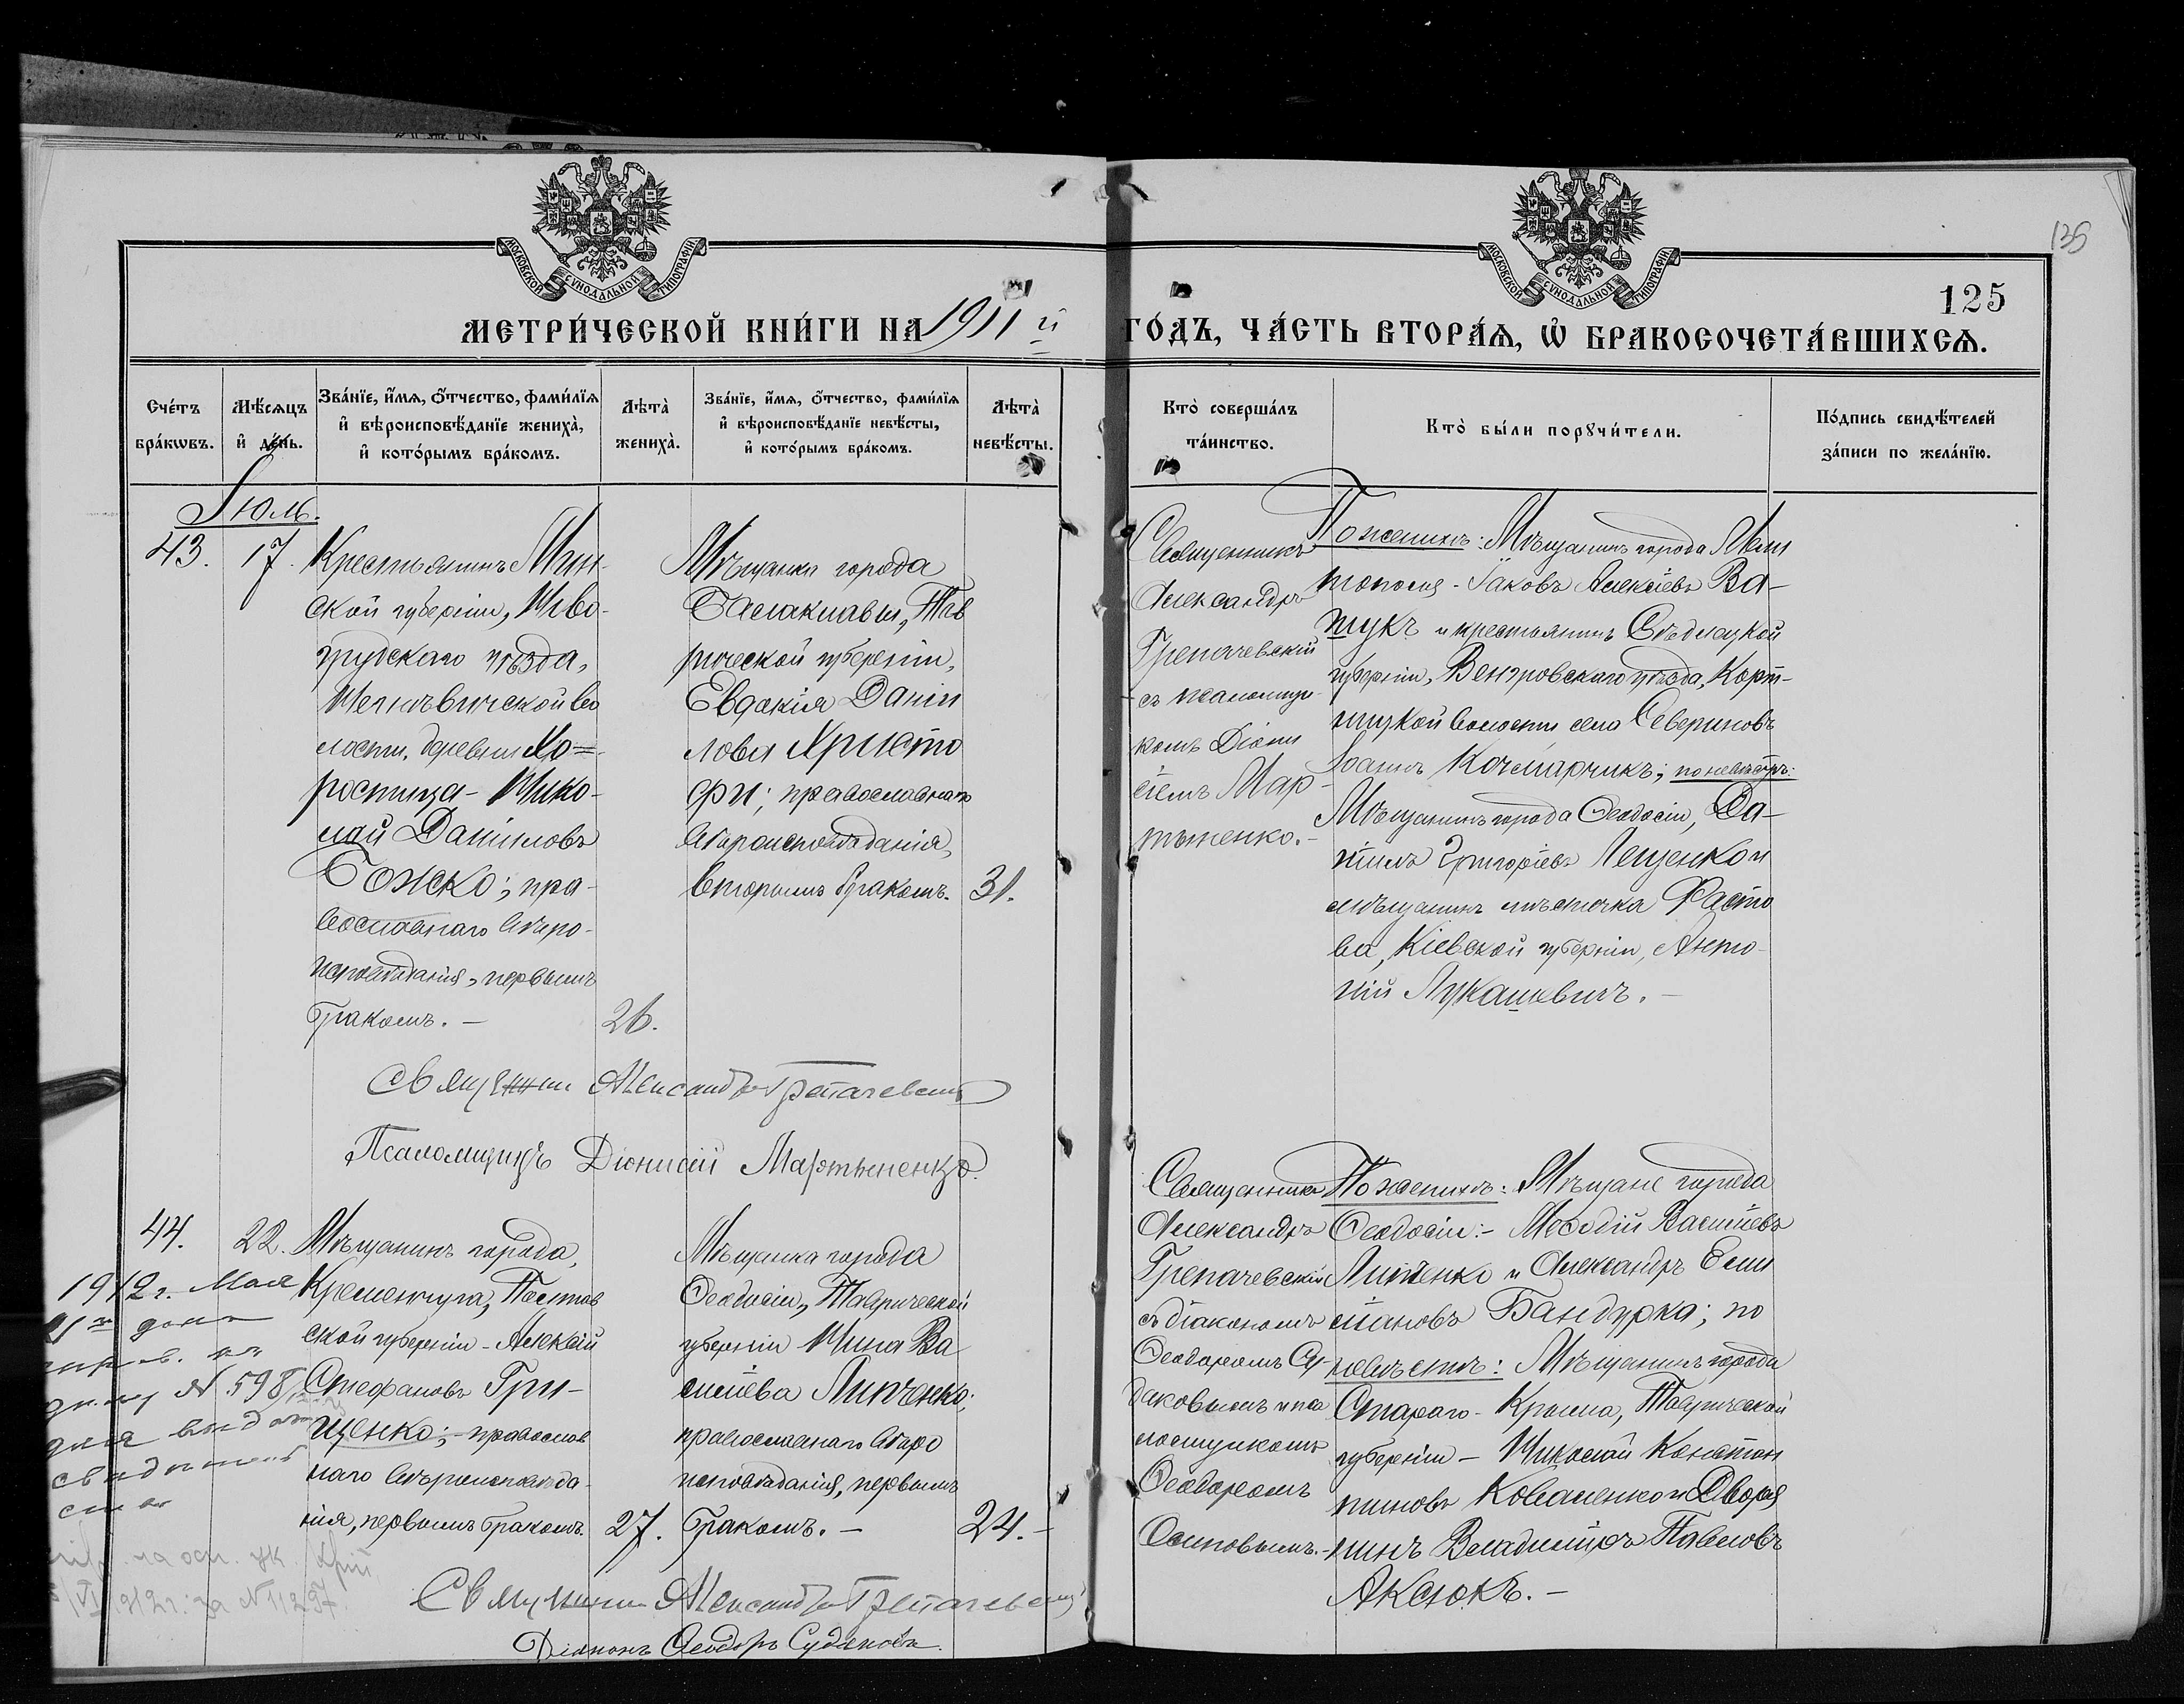 135
125
МОСКОВСКОЙ СѴНОДАЛЬНОЙ ТИПОГРАФІИ
МОСКОВСКОЙ СѴНОДАЛЬНОЙ ТИПОГРАФІИ
МЕТРИ́ЧЕСКОЙ КНИ́ГИ НА 1911 й ГО́ДЪ, ЧА́СТЬ ВТОРА́Ѧ, Ѿ БРАКОСОЧЕТА́ВШИХСѦ.
Сче́тъ бра́кѡвъ.
Мѣ́сѧцъ и҆ де́нь.
Зва́нїе, и҆́мѧ, ѻ҆́тчество, фами́лїѧ и҆ вѣроисповѣ́данїе жениха̀, и҆ кото́рымъ бра́комъ.
Лѣта̀ жениха̀.
Зва́нїе, и҆́мѧ, ѻ҆́тчество, фами́лїѧ и҆ вѣроисповѣ́данїе невѣ́сты, и҆ кото́рымъ бра́комъ.
Лѣта̀ невѣ́сты.
Кто̀ соверша́лъ та́инство.
Кто̀ бы́ли порꙋчи́тели.
По́дпись свидѣ́телей за́писи по жела́нїю.
Іюль.
43.
17.
Крестьянинъ Мин-
ской губерніи, Ново-
грудскаго уѣзда,
волости, деревни Хо=
ростица - Нико-
лай Даніиловъ
Божко; пра-
вославнаго вѣро-
исповѣданія, первымъ
бракомъ. —
26.
Мѣщанка города
Балаклавы, Тав
рической губерніи,
Евдокія Даніи
лова Христо
фи; православнаго
вѣроисповѣданія,
вторымъ бракомъ.
31.
Священникъ
Александръ
Грепачевскій
съ псаломщи-
комъ Діони
сіемъ Мар-
тыненко. -
По женихѣ: Мѣщанинъ города Мели
тополя - Іаковъ Алексіевъ Ва-
щукъ и крестьянинъ Сѣдлецкой
губерніи, Венгровскаго уѣзда, Корт-
ницкой волости села Севериновъ
Іоаннъ Кочмарчикъ; по невѣстѣ:
Мѣщанинъ города Ѳеодосіи, Да-
ніилъ Григоріевъ Лещенко и
мѣщанинъ мѣстечка Фасто
ва, Кіевской губерніи, Анто-
ній Лукашевичъ. —
Священникъ Александръ Грепачевскій
Псаломщикъ Діонисій Мартыненко.
44.
22.
Мѣщанинъ города
Кременчуга, Полтав
ской губерніи - Алексій
Стефановъ Гри-
щенко; - православ
наго вѣроисповѣда-
нія, первымъ бракомъ.
27.
Мѣщанка города
Ѳеодосіи, Таврической
губерніи Нина Ва
силіева Липченко;
православнаго вѣро
исповѣданія, первымъ
бракомъ. —
24. —
Священникъ
Александръ
Грепачевскій
съ діакономъ
Ѳеодоромъ Су-
даковымъ и пса
ломщикомъ
Ѳеодоромъ
Осиповымъ. -
По женихѣ: Мѣщане города
Ѳеодосіи: - Меѳодій Василіевъ
Липченко и Александръ Еми
ліановъ Бандурка; по
невѣстѣ: Мѣщанинъ города
Стараго - Крыма, Таврической
губерніи — Николай Констан
тиновъ Коваленко и Дворя
нинъ Владиміръ Павловъ
Аксюкъ. —
1912 г. Мая
21 го дня
N 598
для выдачи
свидѣтель
ства
на осн. ук.
912 г. за N 11297.
Священникъ Александръ Грепачевскій
Діаконъ Ѳеодоръ Судаковъ.